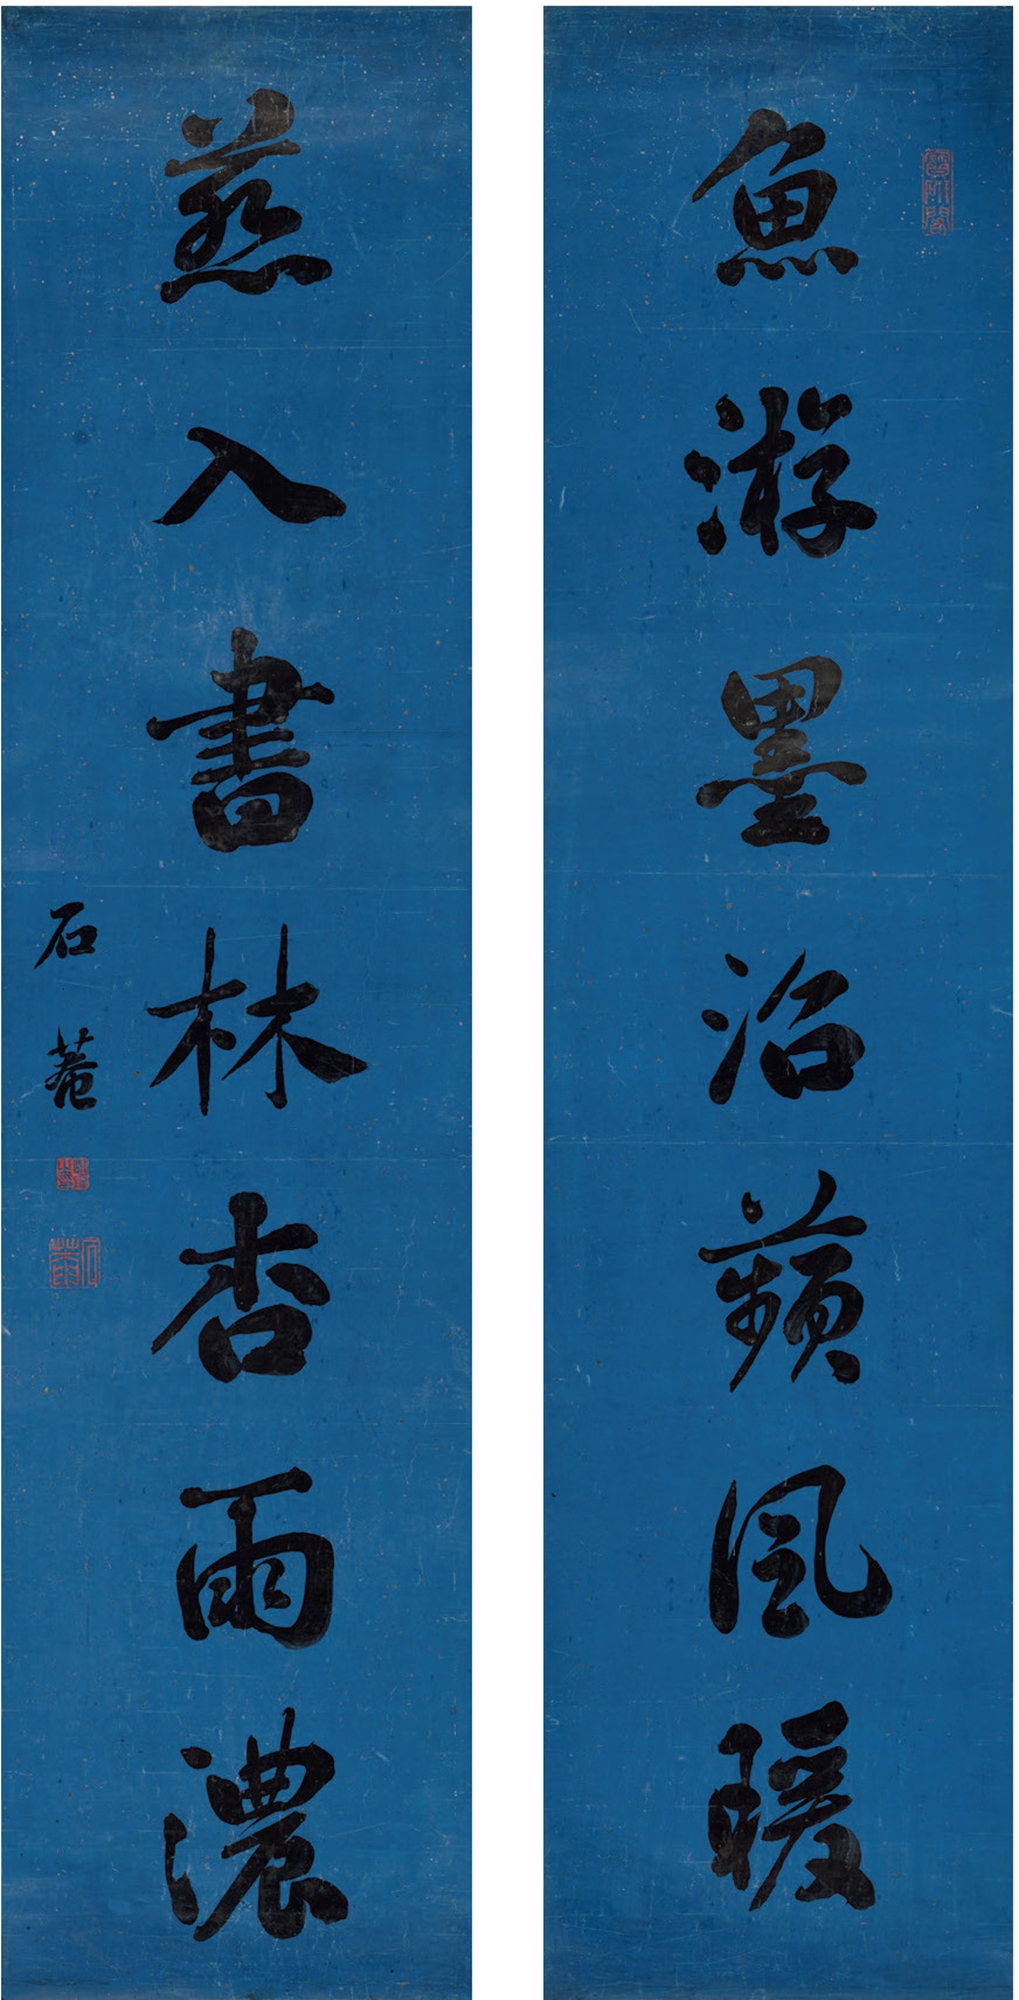 魚游墨沼蘋風暖
燕入書林杏雨濃
石菴
石菴